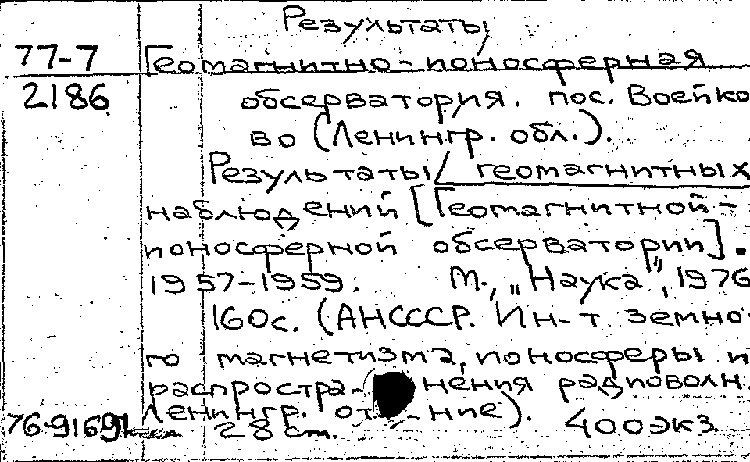 Результаты
77-7 Геомагнитно-ионосферная
2186 обсерватория. пос. Воейко
во (Ленингр. обл.).
Результаты/ геомагнитных
наблюдений [Геомагнитной-
ионосферной обсерватории].
1957-1959. М., „Наука", 1976
160с. (АНСССР. Ин-т земно
го магнетизма, ионосферы и
распростра- нения радиоволн.
Ленингр. от -ние).
76-91691 28 cm. 400экз